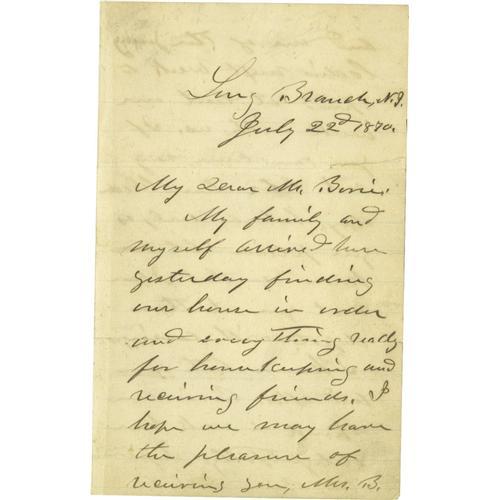 Long Branch, N.J.
July 22d 1870.
My Dear Mr. Borie:
My family and
myself arrived here
yesterday finding
our house in order
and everything ready
for housekeeping and
receiving friends. I
hope we may have
the pleasure of
receiving you, Mrs. B.